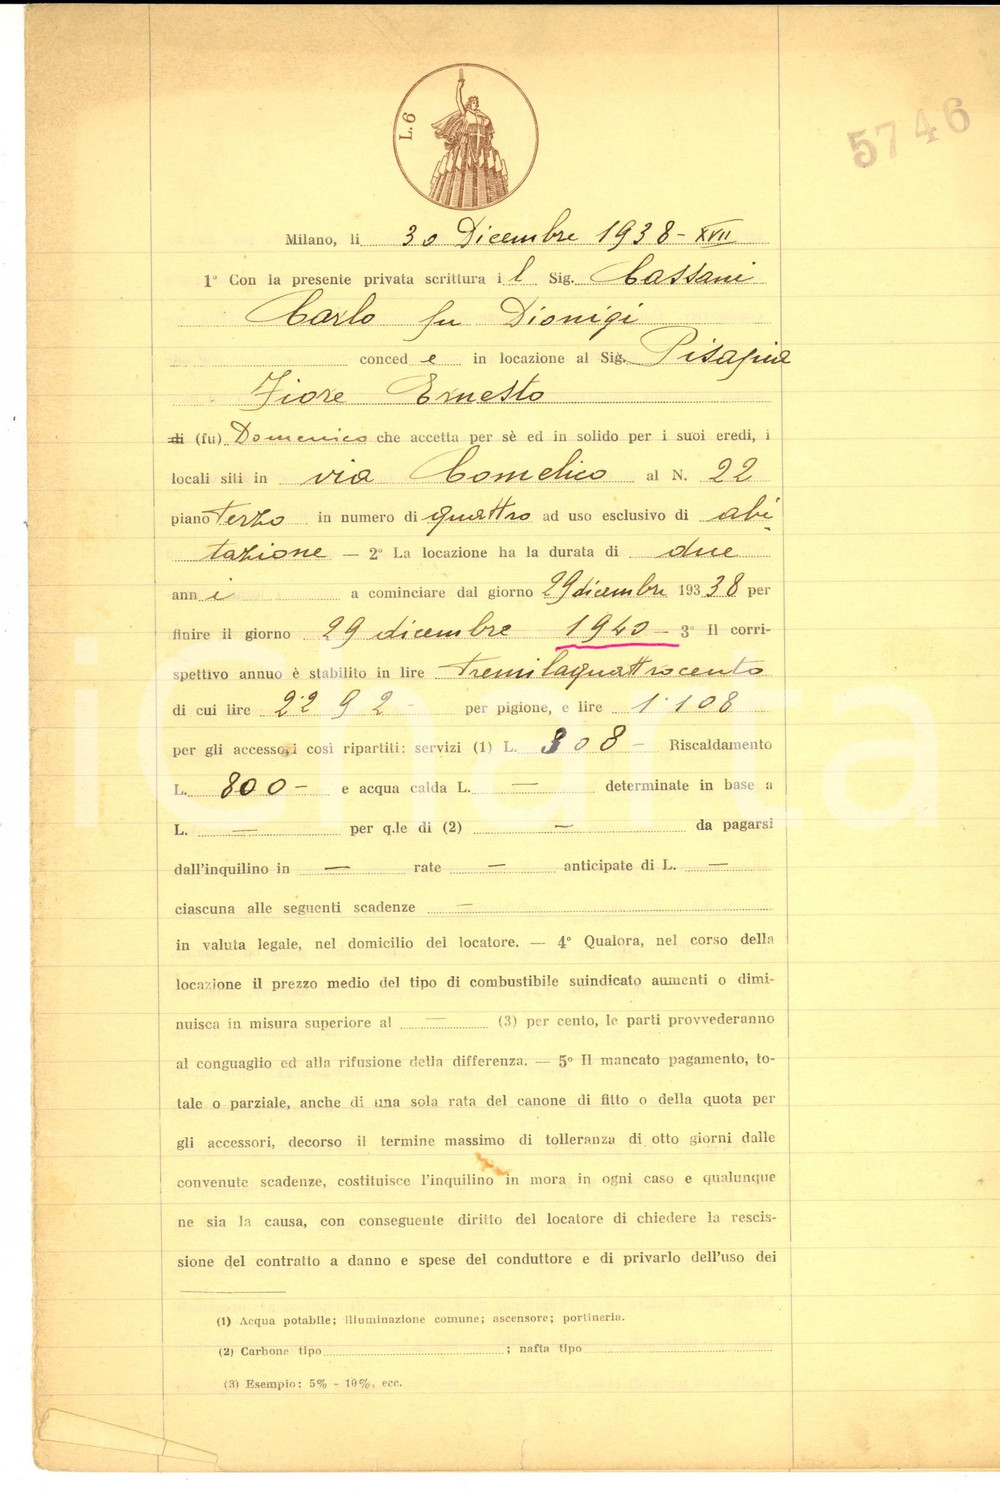 L. 6
5746
Milano, li 30 Dicembre 1938 - XVII
1° Con la presente privata scrittura i l Sig. Cassani
Carlo fu Dionigi
conced e in locazione al Sig. Pisapia
Fiore Ernesto
di (fu) Domenico che accetta per sè ed in solido per i suoi eredi, i
locali siti in via Comelico al N. 22
piano terzo in numero di quattro ad uso esclusivo di abi-
tazione — 2° La locazione ha la durata di due
ann i a cominciare dal giorno 29 dicembre 193 38 per
finire il giorno 29 dicembre 1940 — 3° Il corri-
spettivo annuo è stabilito in lire tremilaquattrocento
di cui lire 2292 - per pigione, e lire 1.108
per gli accessori così ripartiti: servizi (1) L. 308 — Riscaldamento
L. 800 — e acqua calda L. — determinate in base a
L. — per q.le di (2) — da pagarsi
dall'inquilino in — rate — anticipate di L. —
ciascuna alle seguenti scadenze —
in valuta legale, nel domicilio del locatore. — 4° Qualora, nel corso della
locazione il prezzo medio del tipo di combustibile suindicato aumenti o dimi-
nuisca in misura superiore al — (3) per cento, le parti provvederanno
al conguaglio ed alla rifusione della differenza. — 5° Il mancato pagamento, to-
tale o parziale, anche di una sola rata del canone di fitto o della quota per
gli accessori, decorso il termine massimo di tolleranza di otto giorni dalle
convenute scadenze, costituisce l'inquilino in mora in ogni caso e qualunque
ne sia la causa, con conseguente diritto del locatore di chiedere la rescis-
sione del contratto a danno e spese del conduttore e di privarlo dell'uso dei
(1) Acqua potabile; illuminazione comune; ascensore; portineria.
(2) Carbone tipo ; nafta tipo
(3) Esempio: 5% - 10%, ecc.